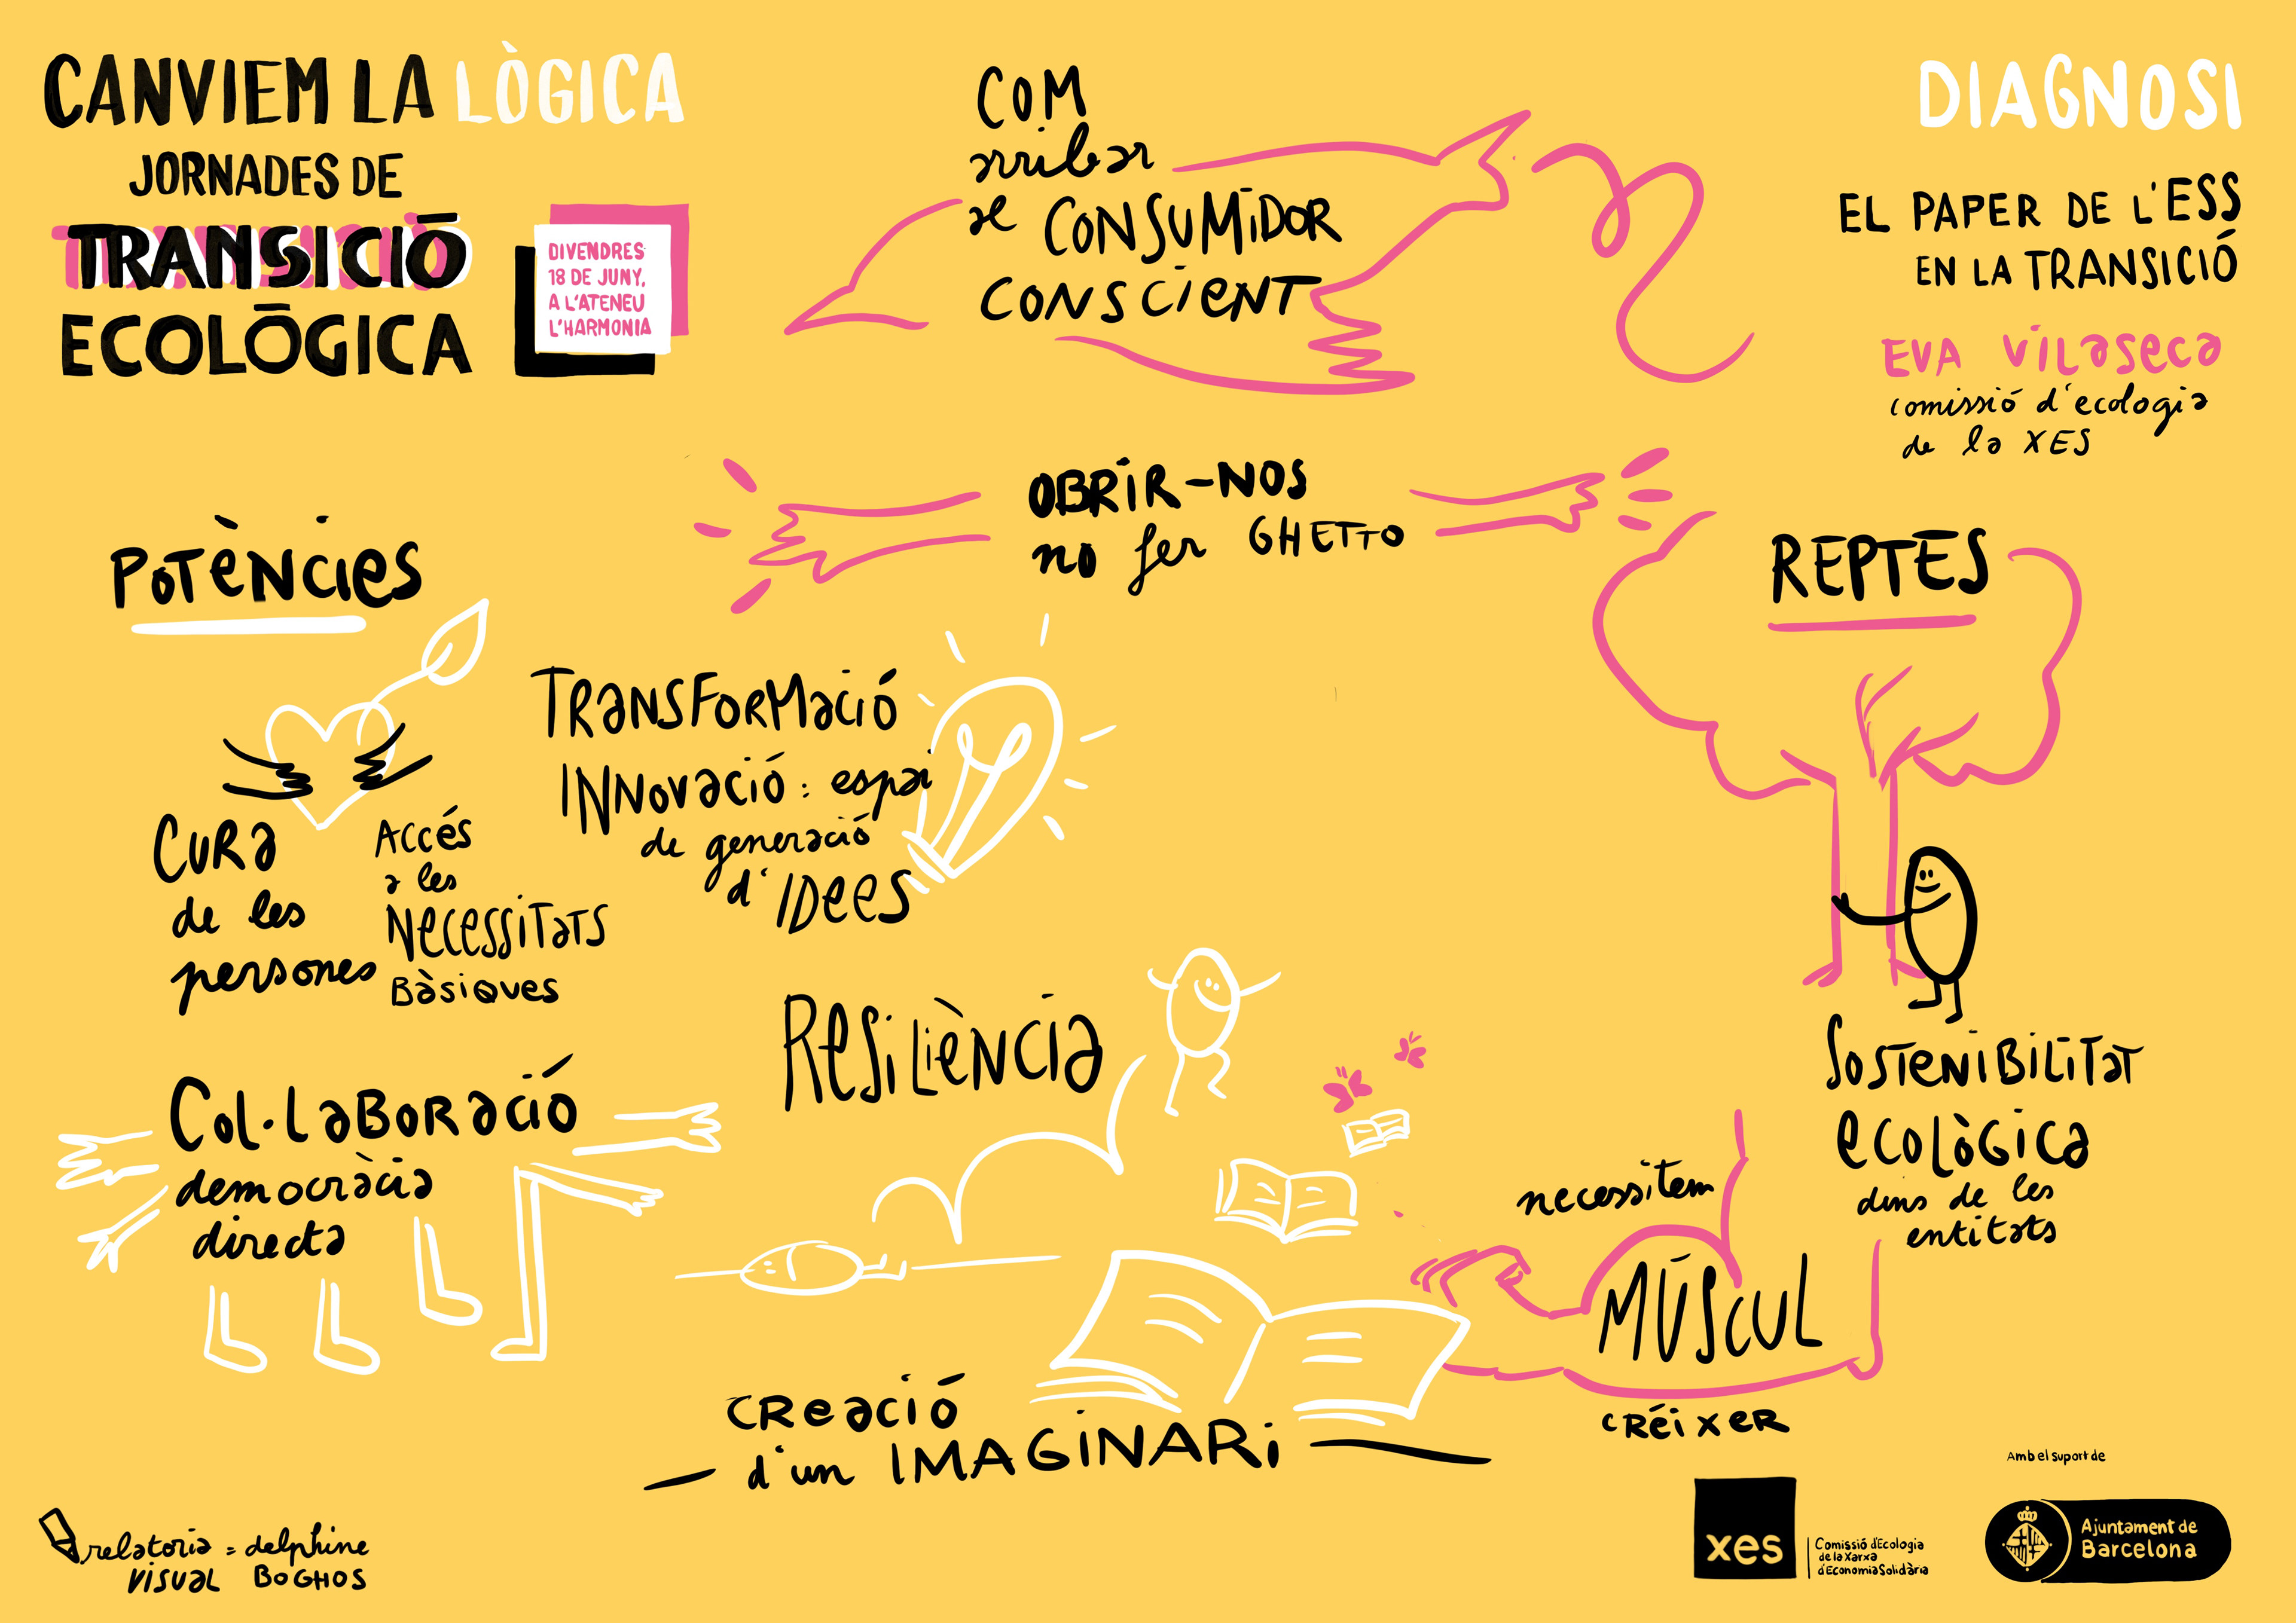 CANVIEM LA LÒGICA
JORNADES DE
TRANSICIÓ
ECOLÒGICA
DIVENDRES
18 DE JUNY,
A L'ATENEU
L'HARMONIA
COM
arribar
al CONSUMIDOR
CONSCIENT
DIAGNOSI
EL PAPER DE L'ESS
EN LA TRANSICIÓ
EVA Vilaseca
comissió d'ecologia
de la XES
OBRIR-NOS
no fer GHETTO
POTÈNCIES
REPTES
TRANSFORMACIÓ
INNOVACIÓ: espai
de generació
d'IDEES
CURA
de les
persones
Accés
a les
NECESSITATS
BÀSIQUES
RESILIÈNCIA
COL·LABORACIÓ
democràcia
directa
SOSTENIBILITAT
ECOLÒGICA
dins de les
entitats
necessitem
MÚSCUL
CRÉIXER
CREACIÓ
d'un IMAGINARI
relatoria = delphine
VISUAL BOGHOS
xes
Comissió d'Ecologia
de la Xarxa
d'Economia Solidària
Amb el suport de
Ajuntament de
Barcelona